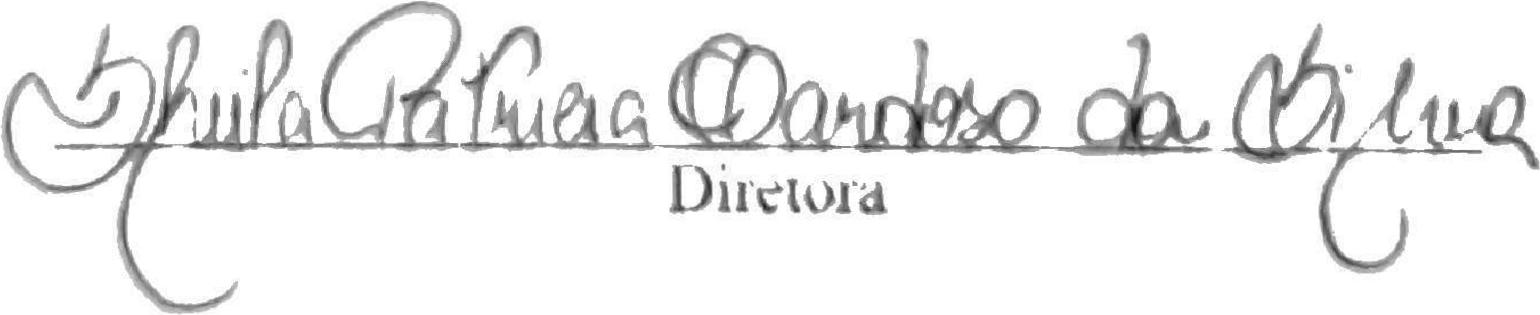 Sheila Patricia Cardoso da Silva
Diretora